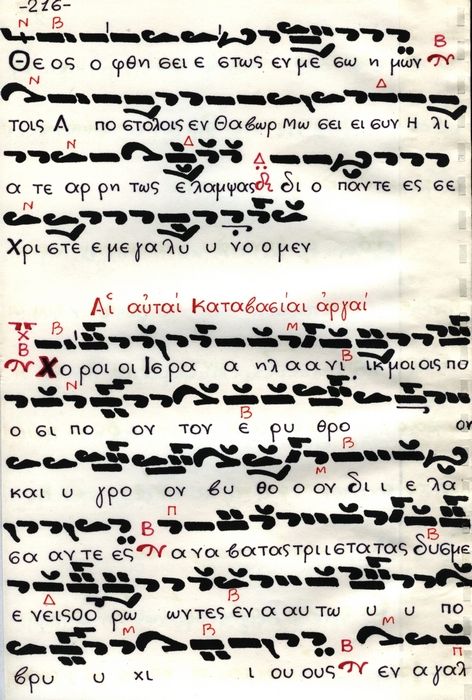 -216-
Θε ος ο φθη σει ε στως εν με σω η μων
τοις Α πο στολοις εν Θαβωρ Μω σει ει συν Η λι
α τε αρ ρη τως ε λαμψας δι ο παντε ες σε
Χρι στε ε με γα λυ υ νο ο μεν
Αἱ αὐταὶ Καταβασίαι ἀργαί
Χο ροι οι Ισ ρα α ηλ α ανι ικ μοι οις πο
ο σι πο ον τον ε ρυ θρο ον
και υ γρο ον βυ θο ο ον δι ι ε λα
σα αν τε ες α να βα τας τρι ι στα τας δυσ με
ε νεις ο ο ρω ω ντες εν α αυ τω υ υ πο
βρυ υ χι ι ου ους εν α γαλ